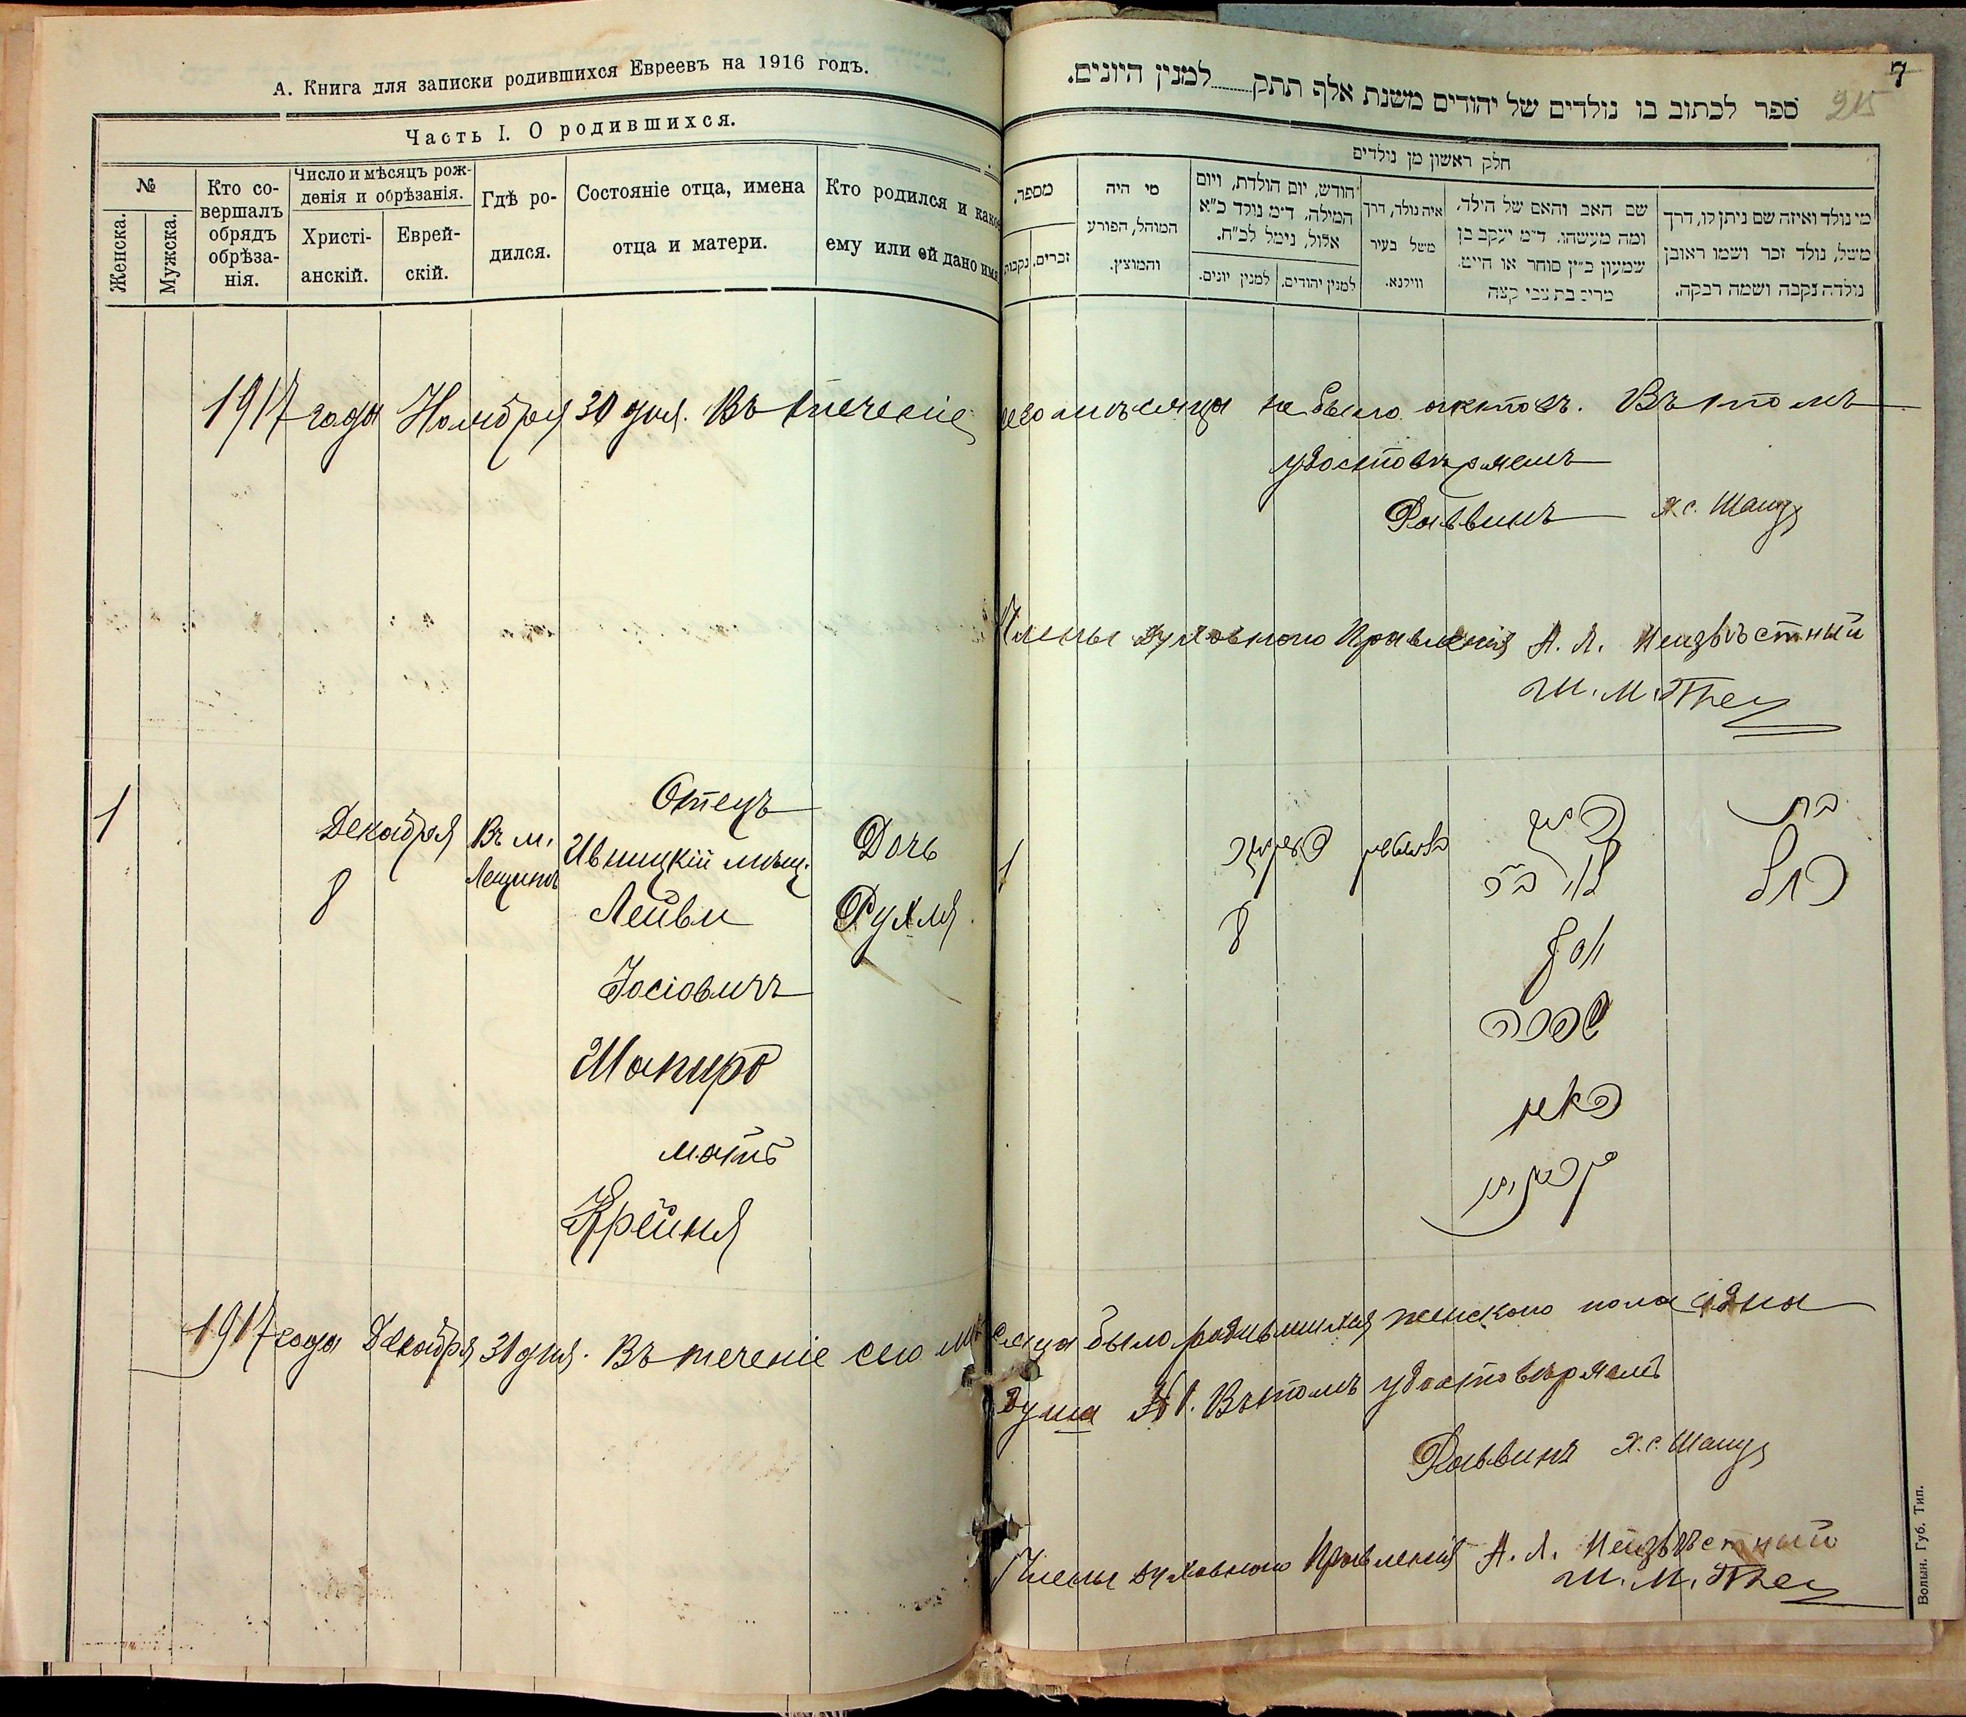 А. Книга для записки родившихся Евреевъ на 1916 годъ.
Часть I. О родившихся.
№
Женска.
Мужска.
Кто со-
вершалъ
обрядъ
обрѣза-
нія.
Число и мѣсяцъ рож-
денія и обрѣзанія.
Христі-
анскій.
Еврей-
скій.
Гдѣ ро-
дился.
Состояніе отца, имена
отца и матери.
Кто родился и какое
ему или ей дано имя
7
215
ספר לכתוב בו נולדים של יהודים משנת אלף תתק למנין היונים.
חלק ראשון מן נולדים
מספר.
זכרים.
נקבות
מי היה
המוהל, הפורע
והמוצץ.
חודש, יום הולדת, ויום
המילה, ד״מ נולד כ״א
אלול, נימל לכ״ח.
למנין יונים.
למנין יהודים.
איה נולד, דרך
משל בעיר
ווילנא.
שם האב והאם של הילד,
ומה מעשהו, ד״מ יעקב בן
שמעון כ״ץ סוחר או חייט.
מרים בת צבי קצה
מי נולד ואיזה שם ניתן לו, דרך
משל, נולד זכר ושמו ראובן
נולדה נקבה ושמה רבקה.
1917 года Ноября 30 дня. Въ теченіе сего мѣсяца не было актовъ. Въ томъ
удостовѣряемъ
Раввинъ
Члены Духовнаго Правленія А. Л. Неизвѣстный
Ш. М.
1
Декабря
8
Въ м.
Лещинъ
Отецъ
Ивницкій мѣщ.
Лейви
Іосіовичъ
Шапиро
мать
Крейня
Дочь
Рухля
1
8
בת
רחל
יוסף
שפירא
1917 года Декабря 31 дня. Въ теченіе сего мѣсяца было родившихся женскаго пола одна
душа № 1. Въ томъ удостовѣряемъ
Раввинъ
Члены Духовнаго Правленія А. Л. Неизвѣстный
Ш. М.
Волын. Губ. Тип.